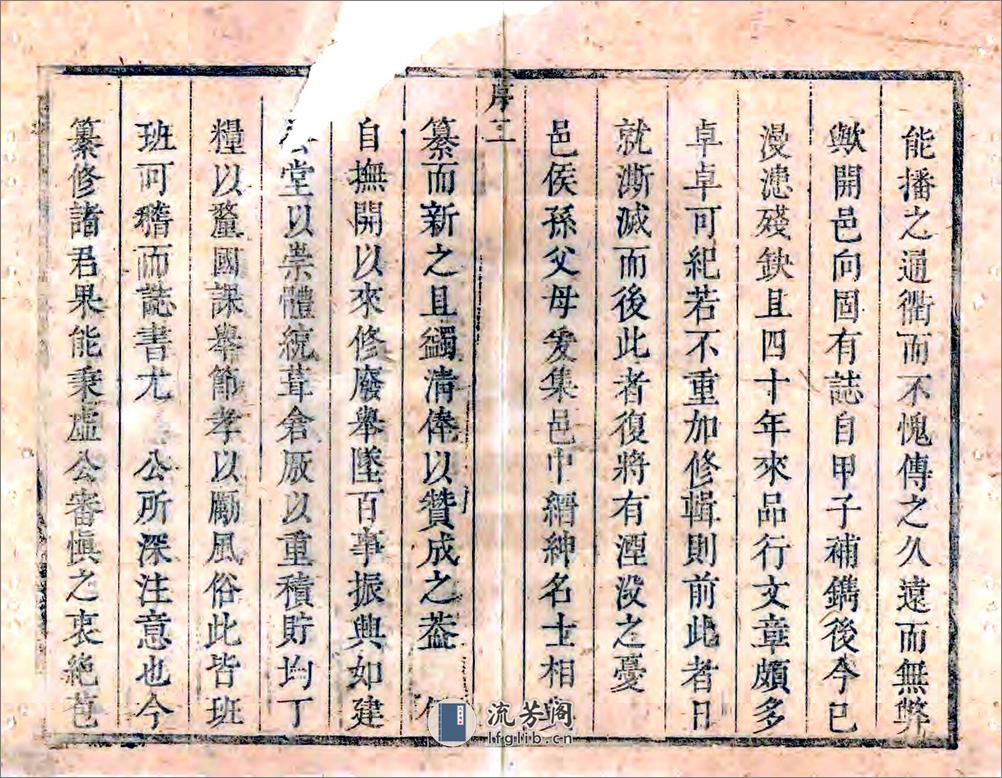 能播之通衢而不愧傳之久遠而無弊
歟開邑向固有誌自甲子補鐫後今已
漫漶殘缺且四十年來品行文章頗多
卓卓可紀若不重加修輯則前此者日
就澌滅而後此者復將有湮沒之憂
邑侯孫父母爰集邑中縉紳名士相
序二
纂而新之且蠲清俸以贊成之蓋
自撫開以來修廢舉墜百事振興如建
堂以崇體統葺倉厫以重積貯均丁
糧以釐國課舉節孝以勵風俗此皆班
班可稽而誌書尤 公所深注意也今
纂修諸君果能秉虛公審慎之衷絶苞
流芳阁
lfglib.cn